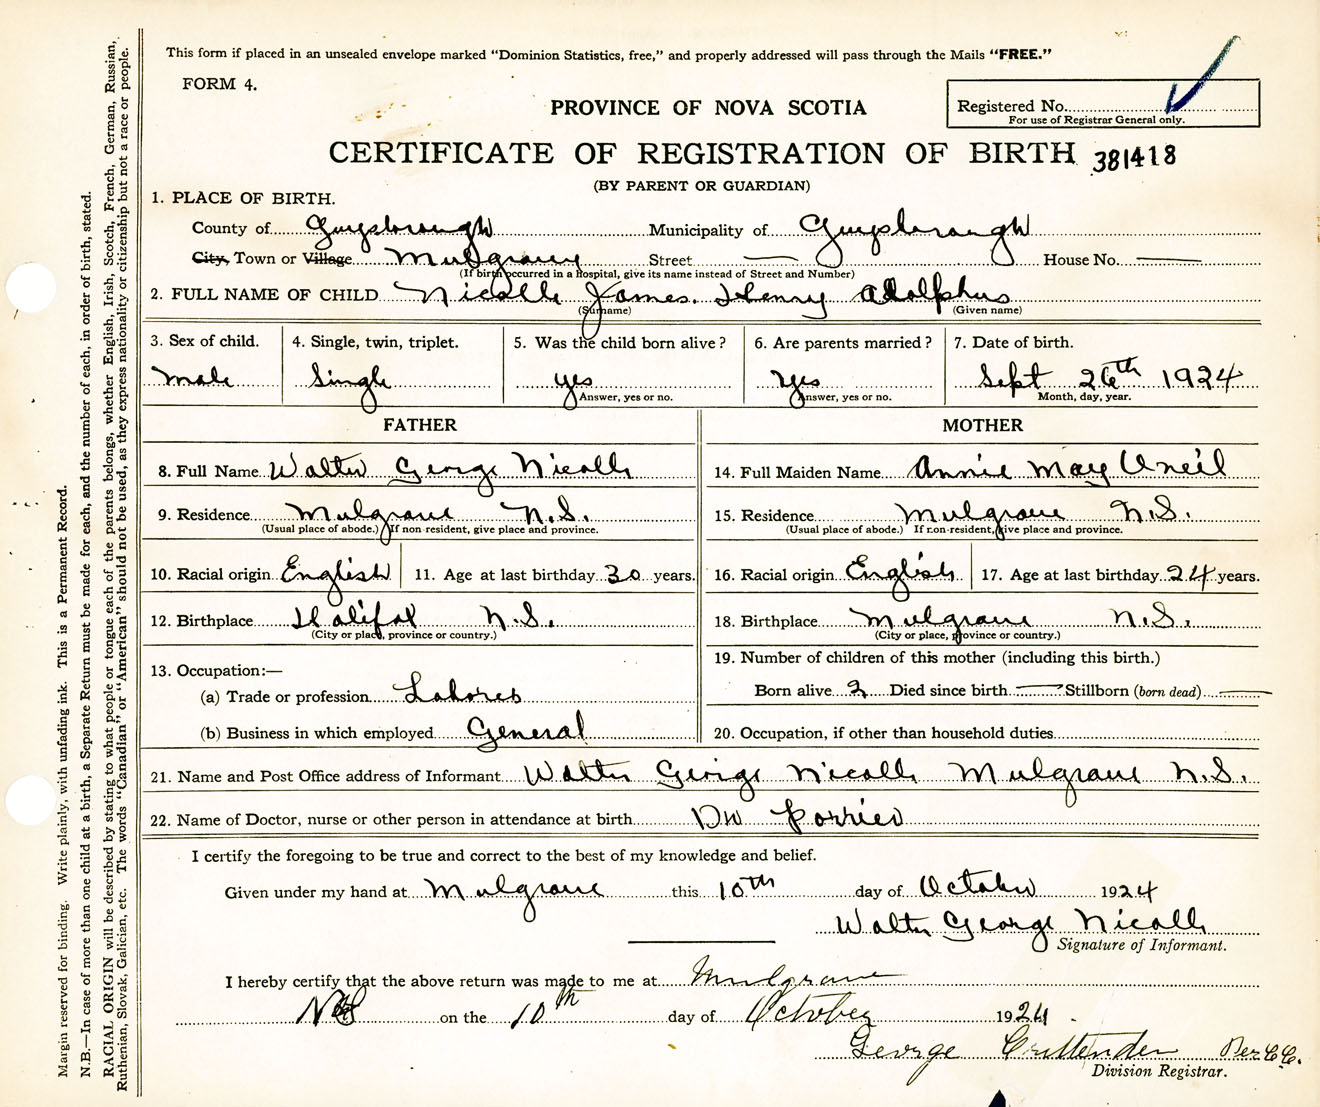 This form if placed in an unsealed envelope marked "Dominion Statistics, free," and properly addressed will pass through the Mails "FREE."
FORM 4.
Registered No.
For use of Registrar General only.
PROVINCE OF NOVA SCOTIA
CERTIFICATE OF REGISTRATION OF BIRTH 381418
(BY PARENT OR GUARDIAN)
1. PLACE OF BIRTH.
County of Guysborough Municipality of Guysborough
City, Town or Village Mulgrave Street — House No. —
(If birth occurred in a hospital, give its name instead of Street and Number)
2. FULL NAME OF CHILD Nicolls James Henry Adolphus
(Surname) (Given name)
3. Sex of child. 4. Single, twin, triplet. 5. Was the child born alive? 6. Are parents married? 7. Date of birth.
Male Single yes Yes Sept 26th 1924
Answer, yes or no. Answer, yes or no. Month, day, year.
FATHER MOTHER
8. Full Name Walter George Nicolls 14. Full Maiden Name Annie May Oneil
9. Residence Mulgrave N.S. 15. Residence Mulgrave N.S.
(Usual place of abode.) If non-resident, give place and province. (Usual place of abode.) If non-resident, give place and province.
10. Racial origin English 11. Age at last birthday 30 years. 16. Racial origin English 17. Age at last birthday 24 years.
12. Birthplace Halifax N.S. 18. Birthplace Mulgrave N.S.
(City or place, province or country.) (City or place, province or country.)
13. Occupation:— 19. Number of children of this mother (including this birth.)
(a) Trade or profession Laborer Born alive 2 Died since birth — Stillborn (born dead) —
(b) Business in which employed General 20. Occupation, if other than household duties
21. Name and Post Office address of Informant Walter George Nicolls Mulgrave N.S.
22. Name of Doctor, nurse or other person in attendance at birth Dr
I certify the foregoing to be true and correct to the best of my knowledge and belief.
Given under my hand at Mulgrave this 10th day of October 1924
Walter George Nicolls
Signature of Informant.
I hereby certify that the above return was made to me at Mulgrave
NS on the 10th day of October 1924
George Crittenden Per C.C.
Division Registrar.
Margin reserved for binding. Write plainly, with unfading ink. This is a Permanent Record.
N.B.—In case of more than one child at a birth, a Separate Return must be made for each, and the number of each, in order of birth, stated.
RACIAL ORIGIN will be described by stating to what people or tongue each of the parents belongs, whether English, Irish, Scotch, French, German, Russian,
Ruthenian, Slovak, Galician, etc. The words "Canadian" or "American" should not be used, as they express nationality or citizenship but not a race or people.